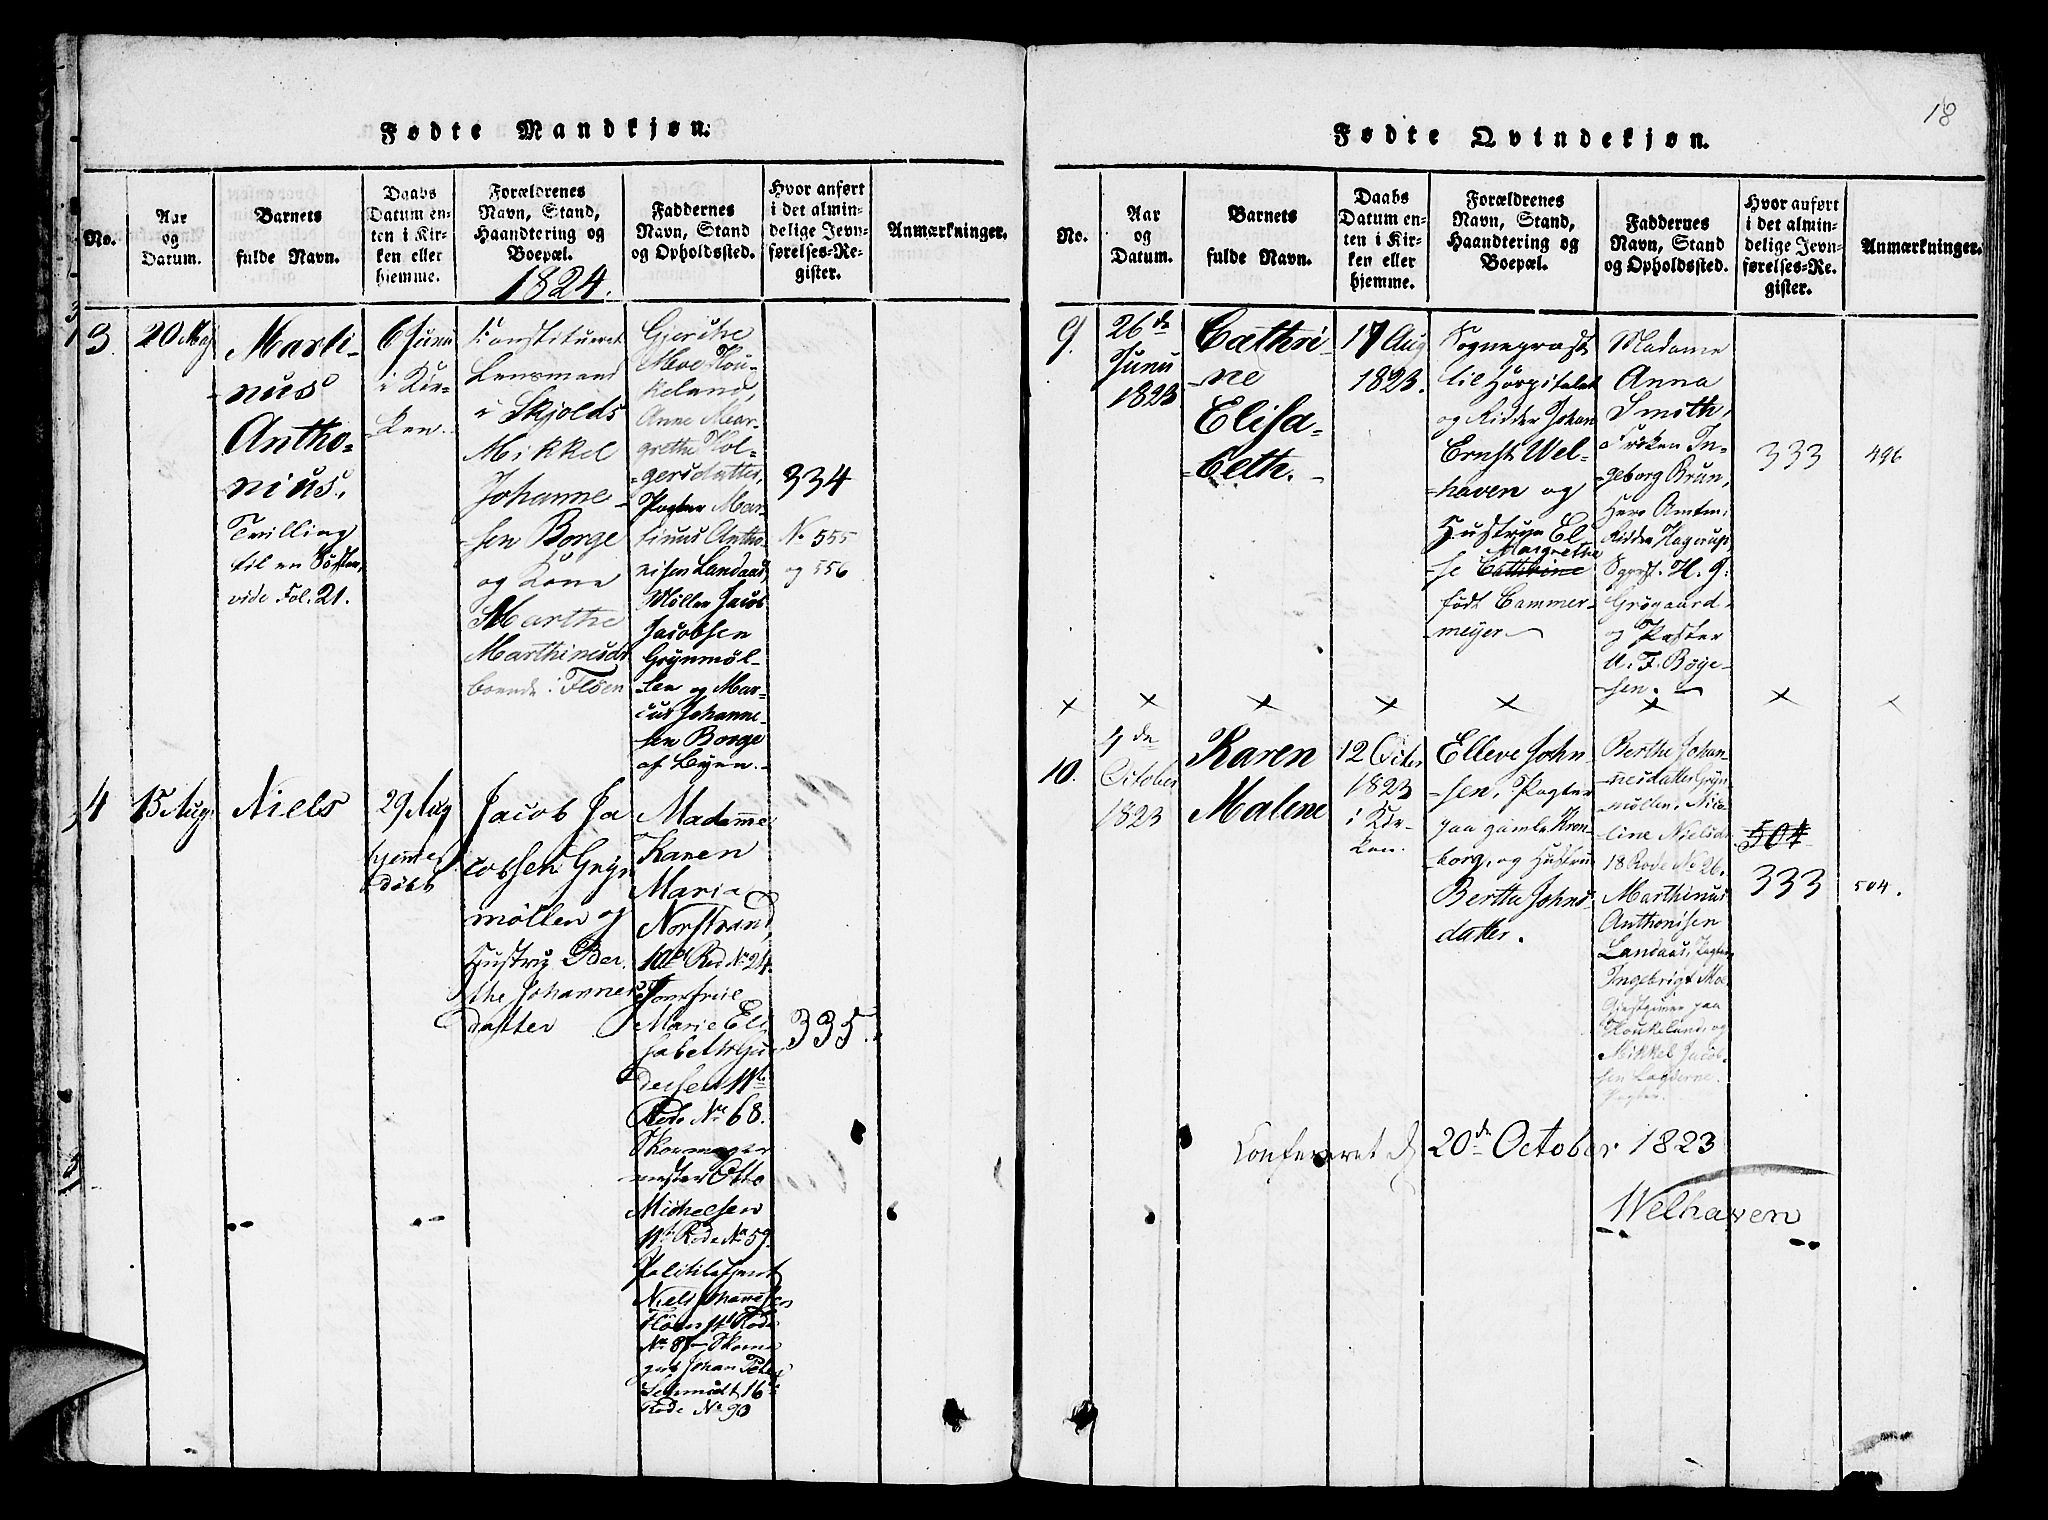 Fødte Mandkjøn.
No.
Aar
og
Datum.
Barnets
fulde Navn.
Daabs
Datum en-
ten i Kir-
ken eller
hjemme.
Forældrenes
Navn, Stand,
Haandtering og
Boepæl.
1824.
Faddernes
Navn, Stand
og Opholdssted.
Hvor anført
i det almin-
delige Jevn-
førelses-Re-
gister.
Anmærkninger.
3.
20 Maj
Marti-
nus
Antho-
nius,
Tvilling
til en Søster,
vide Fol. 21.
6 Junii
i Kir-
ken.
Constitueret
Lensmand
i Skjolds
Mikkel
Johanne-
sen Borge
og Kone
Marthe
Marthinusdr
boende i Fløen
Gjertche
Moe Hou-
keland,
Anne Mar-
grethe Hol-
gersdatter,
Pagter Mar-
tinus Antho-
nisen Landaas,
Møller Jacob
Jacobsen
Grynmøl-
len og Mar-
cus Johanne-
sen Borge
af Byen.
334
No 555
og 556
4
15 Aug.
Niels
29 Aug
hjemme
døbt
Jacob Ja
cobsen Gryn
møllen og
Hustru Ber.
the Johannes
datter
Madamme
Karen
Maria
Norstrand,
10de Rod No 24.
Jomfrue
Marie Eli
sabeth Gun
dersen 11te
Rode No 68.
Skomager
mester Otto
Michelsen
11te Rode No 59.
Politibetjent
Niels
Fløen 14 Rode
No 87 Skoma
ger Johan Peter
Schmidt 16de
Rode No 93
335.
18
Fødte Qvindekjøn.
No.
Aar
og
Datum.
Barnets
fulde Navn.
Daabs
Datum en-
ten i Kir-
ken eller
hjemme.
Forældrenes
Navn, Stand,
Haandtering og
Boepæl.
Faddernes
Navn, Stand
og Opholdssted.
Hvor anført
i det almin-
delige Jevn-
førelses-Re-
gister.
Anmærkninger.
9.
26de
Junii
1823
Cathri-
ne
Elisa-
beth.
17 Aug
1823.
Sognepræst
til Hospitalet
og Ridder Johan
Ernst Wel-
haven og
Hustrue El-
Margrethe
se Cathrine
født Cammer-
meyer
Madame
Anna
Smith,
Frøken In-
geborg Brun,
Herr Amtm.
Ridder Hagerup,
Sgprst. H. G:
Grøgaard
og Pastor
U. F. Bøye-
sen.
333
496
10.
4de
October
1823
Karen
Malene
12 Octbr
1823
i Kir-
ken.
Elleve John-
sen, Pagter
paa gamle Kron-
borg, og Hustru
Berthe Johns-
datter.
Berthe Johan-
nesdatter Gryn
møllen, Nico-
line Nielsdr
18 Rode No 26.
Marthinus
Anthonisen
Landaas, Pagter
Ingebrigt Moe
Giestgiver paa
Houkeland, og
Mikkel Jacob-
sen
Pagter.
504
333
504.
Confereret d 20de October 1823
Welhaven